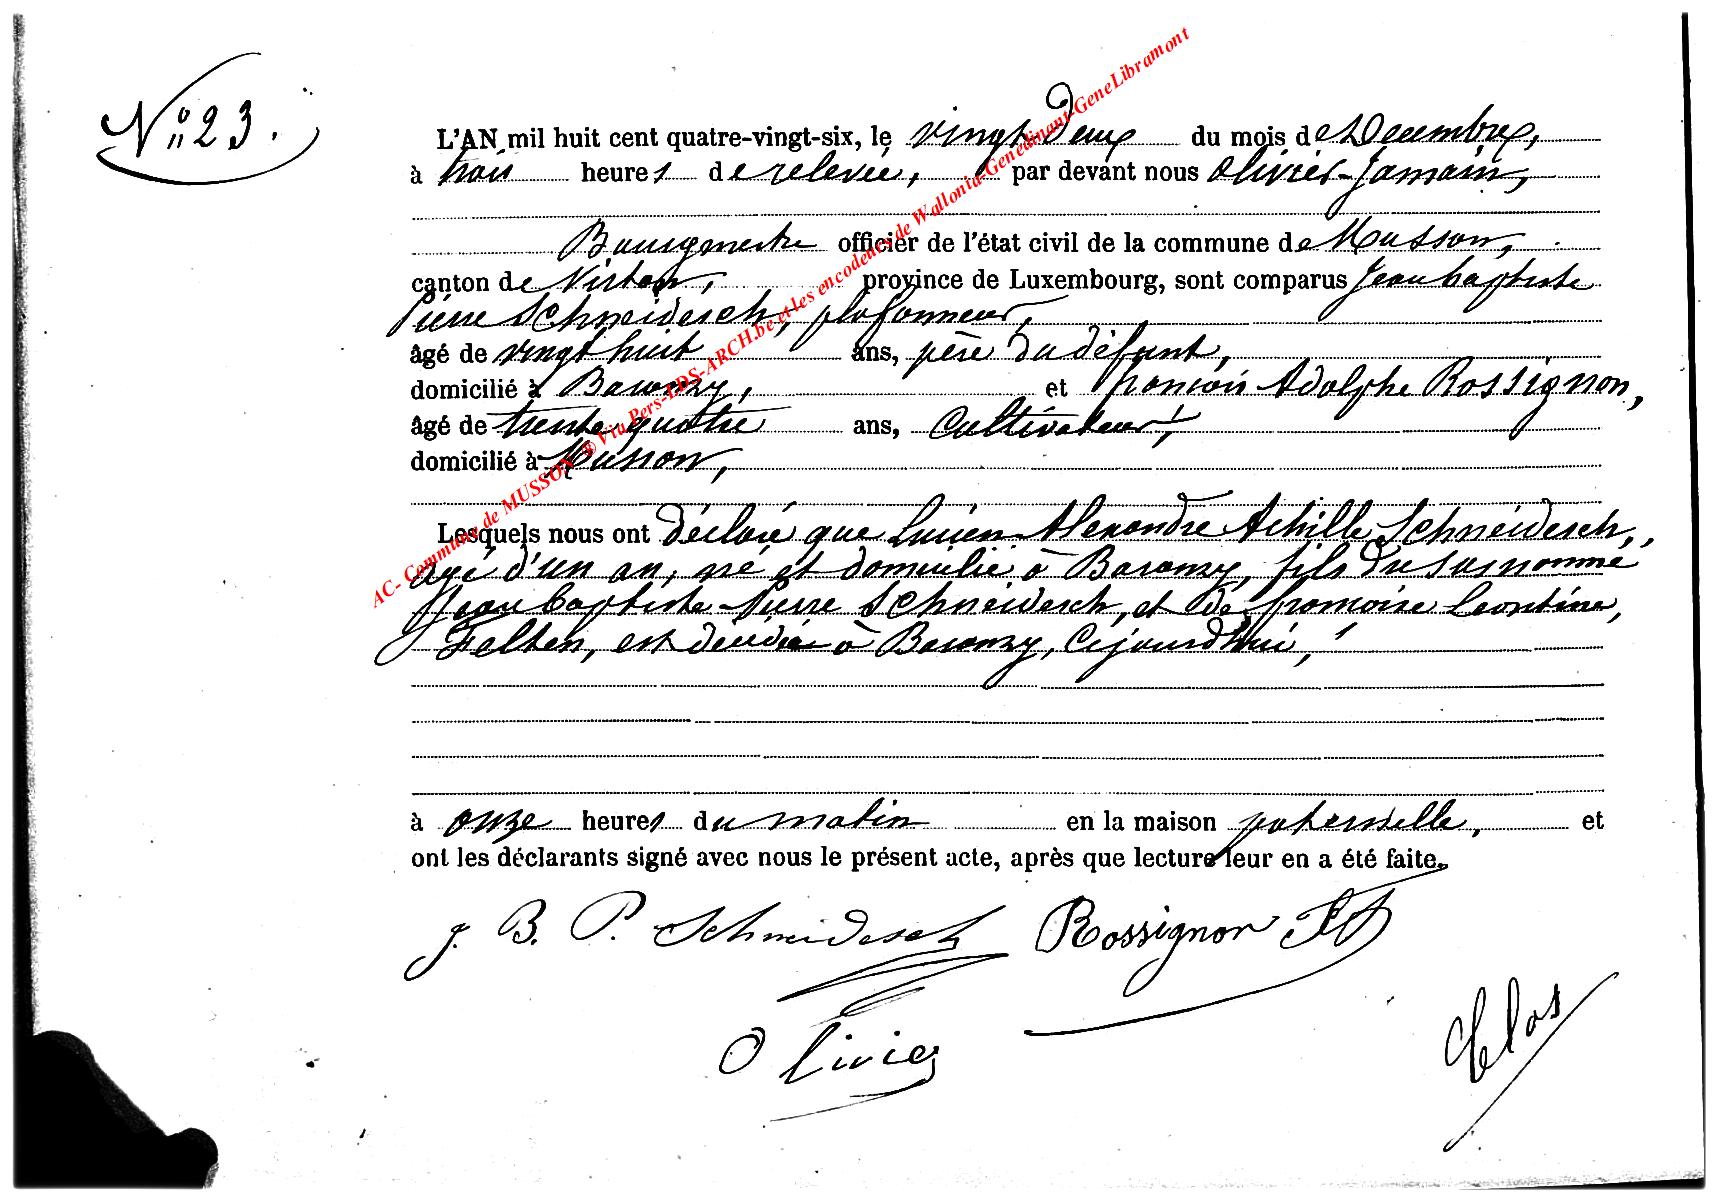 N° 23.
L'AN mil huit cent quatre-vingt-six, le vingt deux du mois de Décembre,
à trois heures de relevée, par devant nous Olivier Jamain,
Bourgmestre officier de l'état civil de la commune de Musson,
canton de Virton, province de Luxembourg, sont comparus Jean baptiste
Pierre Schneidesch, plafonneur,
âgé de vingt huit ans, père du défunt,
domicilié à Baranzy, et françois Adolphe Rossignon,
âgé de trente quatre ans, cultivateur,
domicilié à Musson,
Lesquels nous ont déclaré que Lucien Alexandre Achille Schneidesch,
agé d'un an, né et domicilié à Baranzy, fils du susnommé
Jean baptiste Pierre Schneidesch, et de françoise Léontine,
Felten, est décédé à Baranzy, cejourd'hui,
à onze heures du matin en la maison paternelle, et
ont les déclarants signé avec nous le présent acte, après que lecture leur en a été faite.
J. B. P. Schneidesch Rossignon
Olivier
Clos
AC- Commune de MUSSON ® Via Pers-LDS-ARCH.be et les encodeurs de Wallonia-Genedinant-GeneLibramont